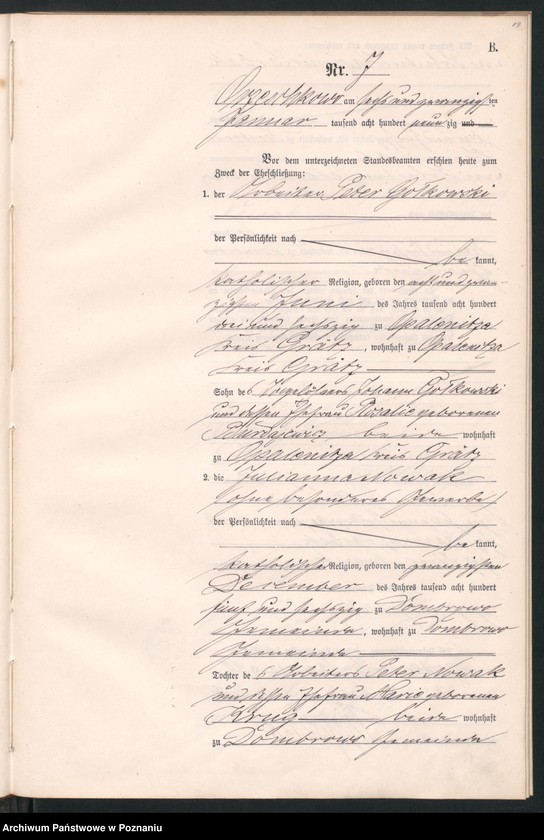 B.
Nr. 7
am sechs und zwanzigsten
Januar tausend acht hundert neunzig und
Vor dem unterzeichneten Standesbeamten erschien heute zum
Zweck der Eheschließung:
1. der Arbeiter Peter Gołkowski
der Persönlichkeit nach
be kannt,
katholischer Religion, geboren den acht und zwan-
zigsten Juni des Jahres tausend acht hundert
drei und sechszig zu Opalenitza
Kreis Grätz, wohnhaft zu Opalenitza
Kreis Grätz
Sohn des Johann Gołkowski
und dessen Ehefrau Rosalie geborenen
beide wohnhaft
zu Opalenitza Kreis Grätz
2. die Julianna Nowak
ohne besonderes Gewerbe
der Persönlichkeit nach
be kannt,
katholischer Religion, geboren den zwanzigsten
December des Jahres tausend acht hundert
fünf und sechszig zu Dombrowo
Gemeinde, wohnhaft zu Dombrowo
Gemeinde
Tochter des Arbeiters Peter Nowak
und dessen Ehefrau Marie geborenen
Krug beide wohnhaft
zu Dombrowo Gemeinde
Archiwum Państwowe w Poznaniu